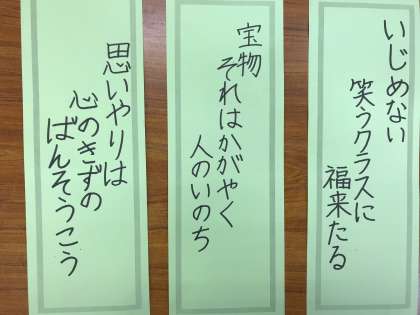 いじめない
笑うクラスに
福来たる
宝物
それはかがやく
人のいのち
思いやりは
心のきずの
ばんそうこう